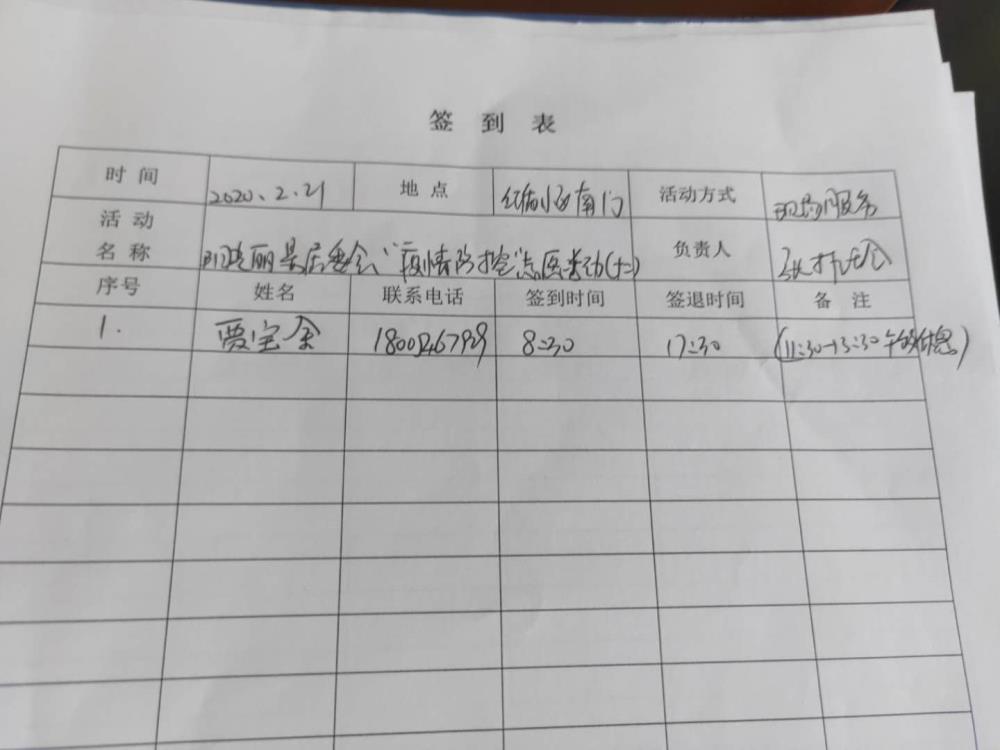 签到表
时间 2020.2.21 地点 南门 活动方式 现场服务
活动
名称 丽景居委会“疫情防控”志愿活动(十二) 负责人
序号 姓名 联系电话 签到时间 签退时间 备注
1. 贾宝金 8:30 17:30 (11:30-13:30午休息)